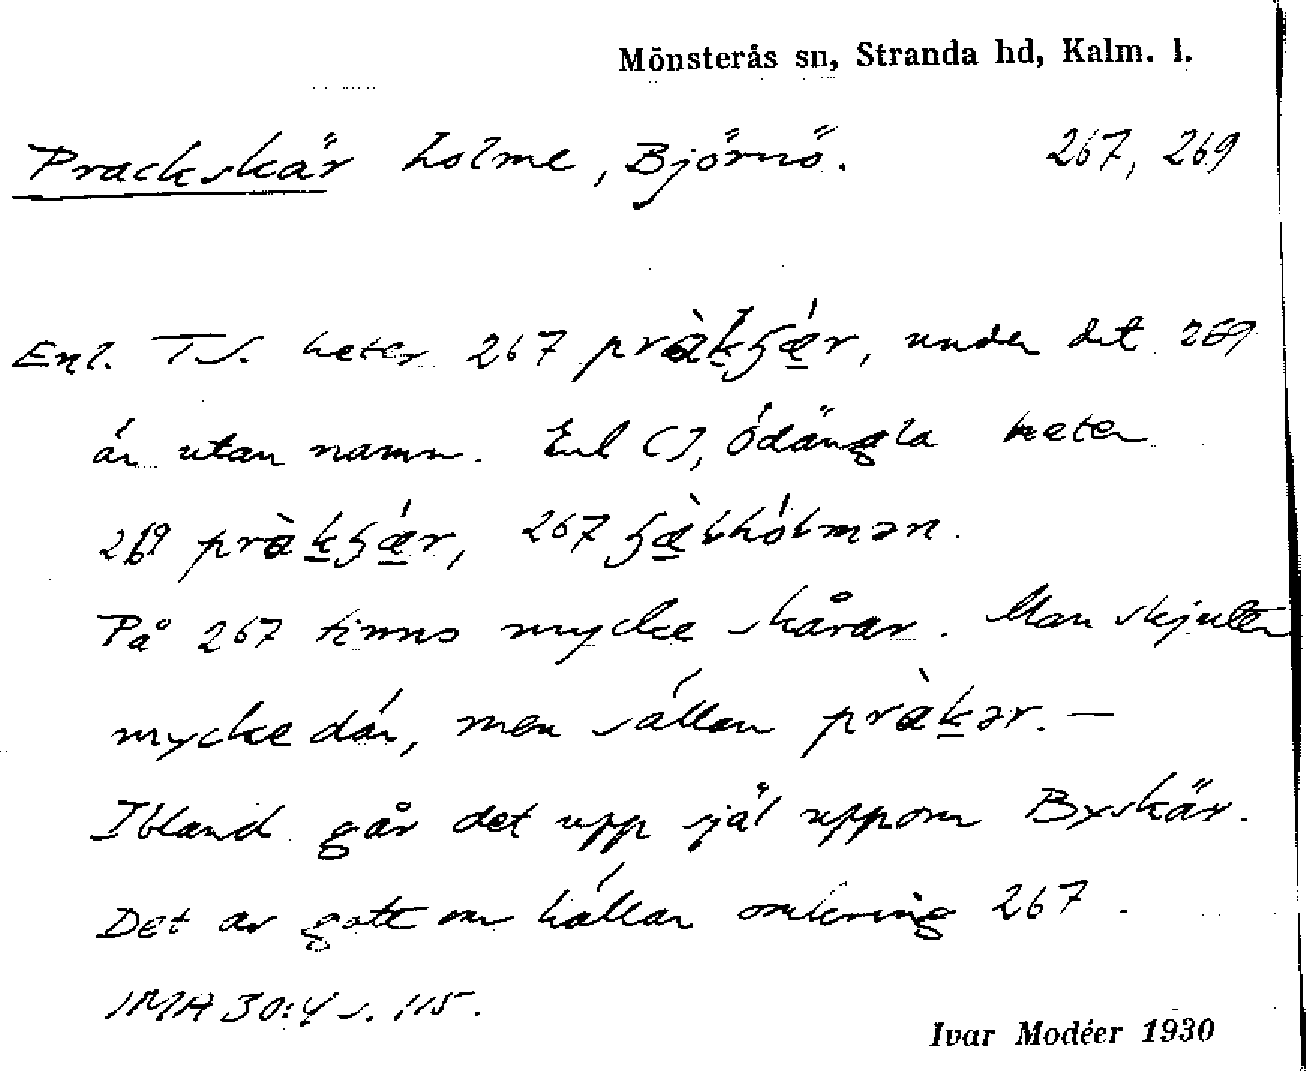 Mönsterås sn, Stranda hd, Kalm. l.
Prackskär holme, Björnö. 267, 269
Enl. TS. heter 267 pràkʂǽr, under det 269
är utan namn. Enl CJ, Ödängla heter
269 pràkʂǽr, 267
På 267 finns mycke skårar. Man skjutter
mycke där, men sällan pràkər. —
Ibland går det upp själ uppom Byskär.
Det ar gott om hällar omkring 267.
IMA 30:4 s. 115.
Ivar Modéer 1930